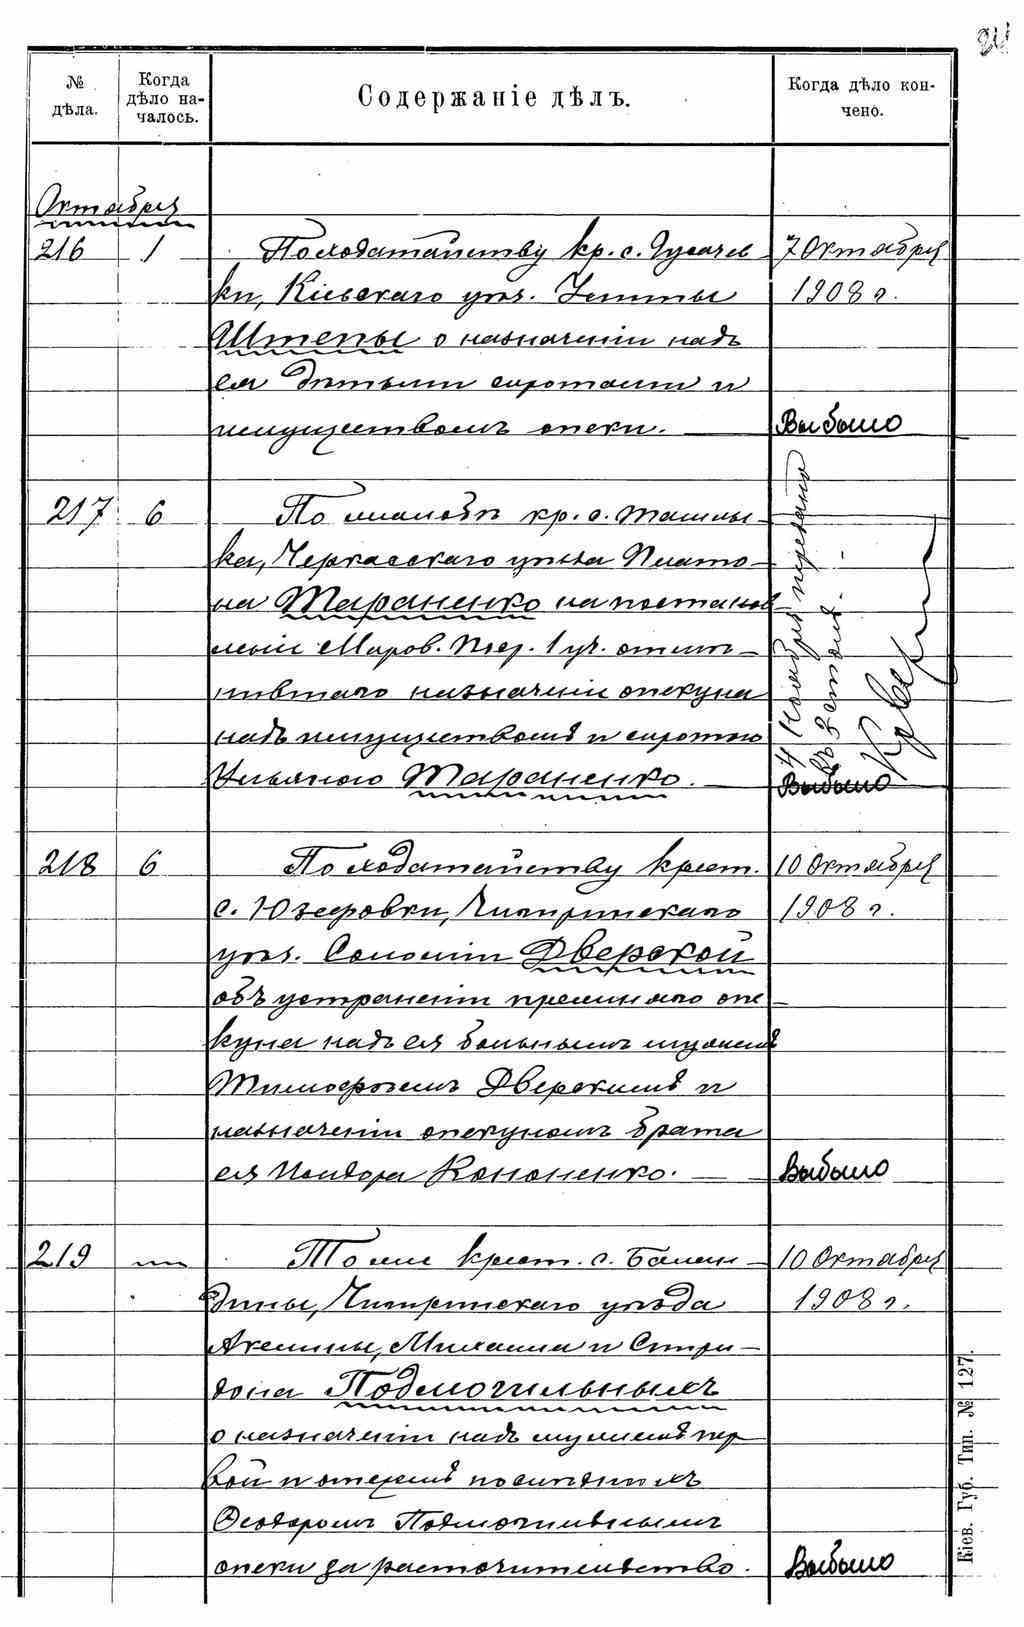 № дѣла.
Когда дѣло на-
чалось.
Содержаніе дѣлъ.
Когда дѣло кон-
чено.
Октября
216 1 По ходатайству кр. с. Гусачев- 7 Октября
ки, Кіевскаго уѣз. 1908 г.
Штепы о назначеніи надъ
ея дѣтьми сиротами и
имуществомъ опеки. — Выбыло
217 6 По жалобѣ кр. с. Ташлы-
ка, Черкасскаго уѣзда Плато-
на Тараненко на постанов
леніе Миров. Поср. 1 уч. отмѣ-
нившаго назначеніи опекуна
надъ имуществомъ и сиротою
Ульяною Тараненко. — Выбыло
4 Ноября передано
въ 3 столъ. -
218 6 По ходатайству крест. 10 Октября
с. Юзефовки, Чигиринскаго 1908 г.
уѣз. Соломіи Дверской
объ устраненіи прежняго опе-
куна надъ ея больнымъ мужемъ
Тимофѣемъ Дверскимъ и
назначеніи опекуномъ брата
ея Исидора Кононенко. — Выбыло
219 — То же крест. с. Балан- 10 Октября
дины, Чигиринскаго уѣзда 1908 г.
Акелины, Михаила и Спири-
дона Подмогильныхъ
о назначеніи надъ мужемъ пер
вой и отцемъ послѣднихъ
Феодоромъ Подмогильнымъ
опеки за расточительство. Выбыло
Кіев. Губ. Тип. № 127.